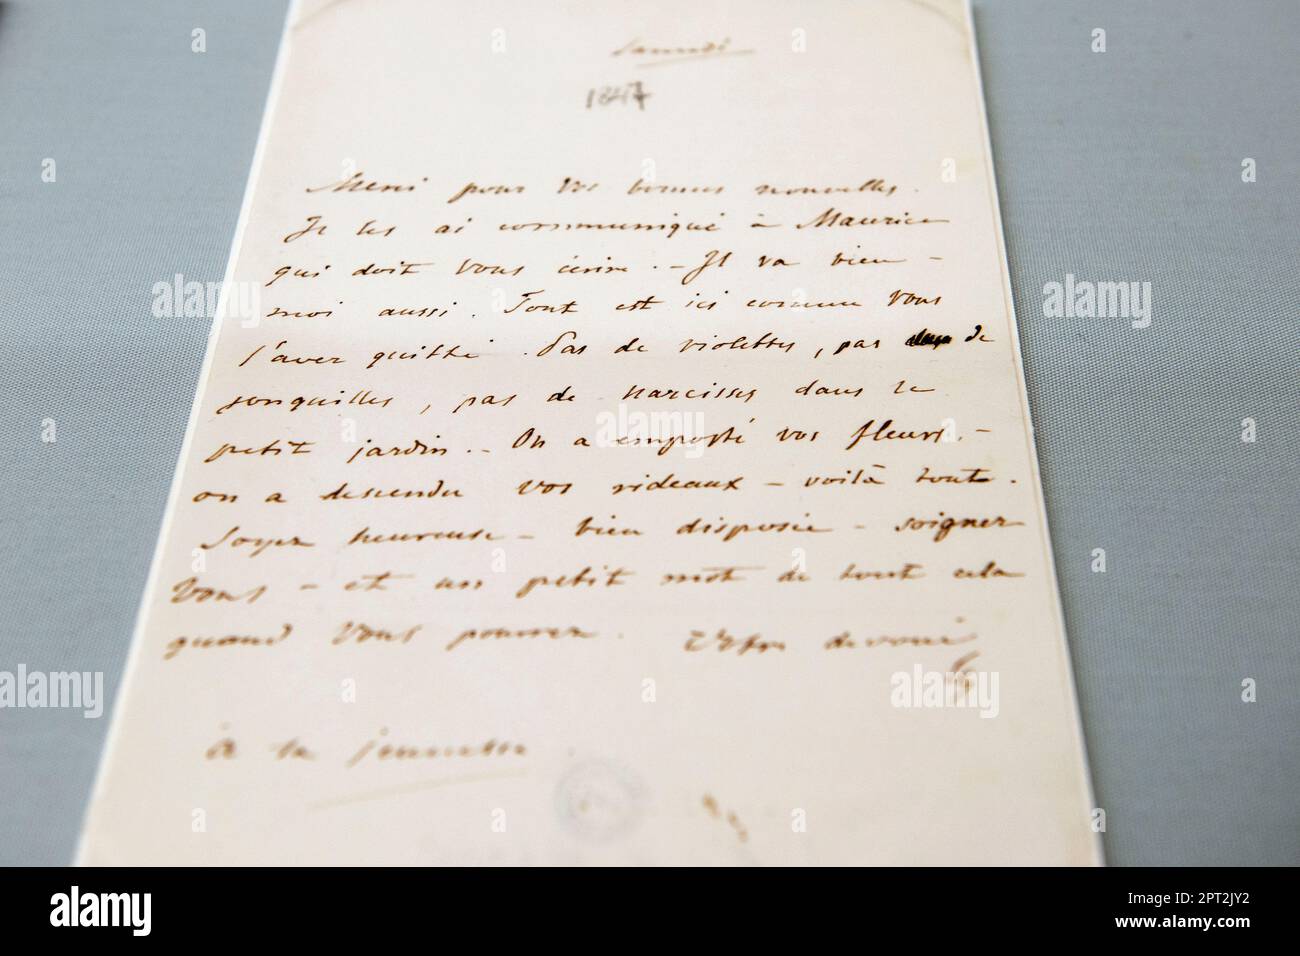 Samedi
1847
Merci pour vos bonnes nouvelles.
Je les ai communiqué à Maurice
qui doit vous écrire. – Il va bien –
moi aussi. Tout est ici comme vous
l'avez quitté. Pas de violettes, pas de
jonquilles, pas de narcisses dans le
petit jardin. – On a emporté vos fleurs, –
on a descendu vos rideaux – voilà tout.
Soyez heureuse – bien disposée – soignez
vous – et un petit mot de tout cela
quand vous pourrez. Votre dévoué
à la jeunesse
alamy
Image ID: 2PT2JY2
www.alamy.com